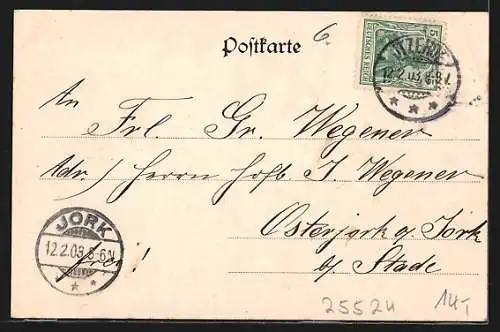 Postkarte
6.
5
DEUTSCHES REICH
12.2.03.
An
Frl. Gr. Wegener
Adr./ Herrn Hofb. J. Wegener
Osterjork a. Jork
b/ Stade
JORK
12.2.03. 5-6N
frei!
25524
14,-